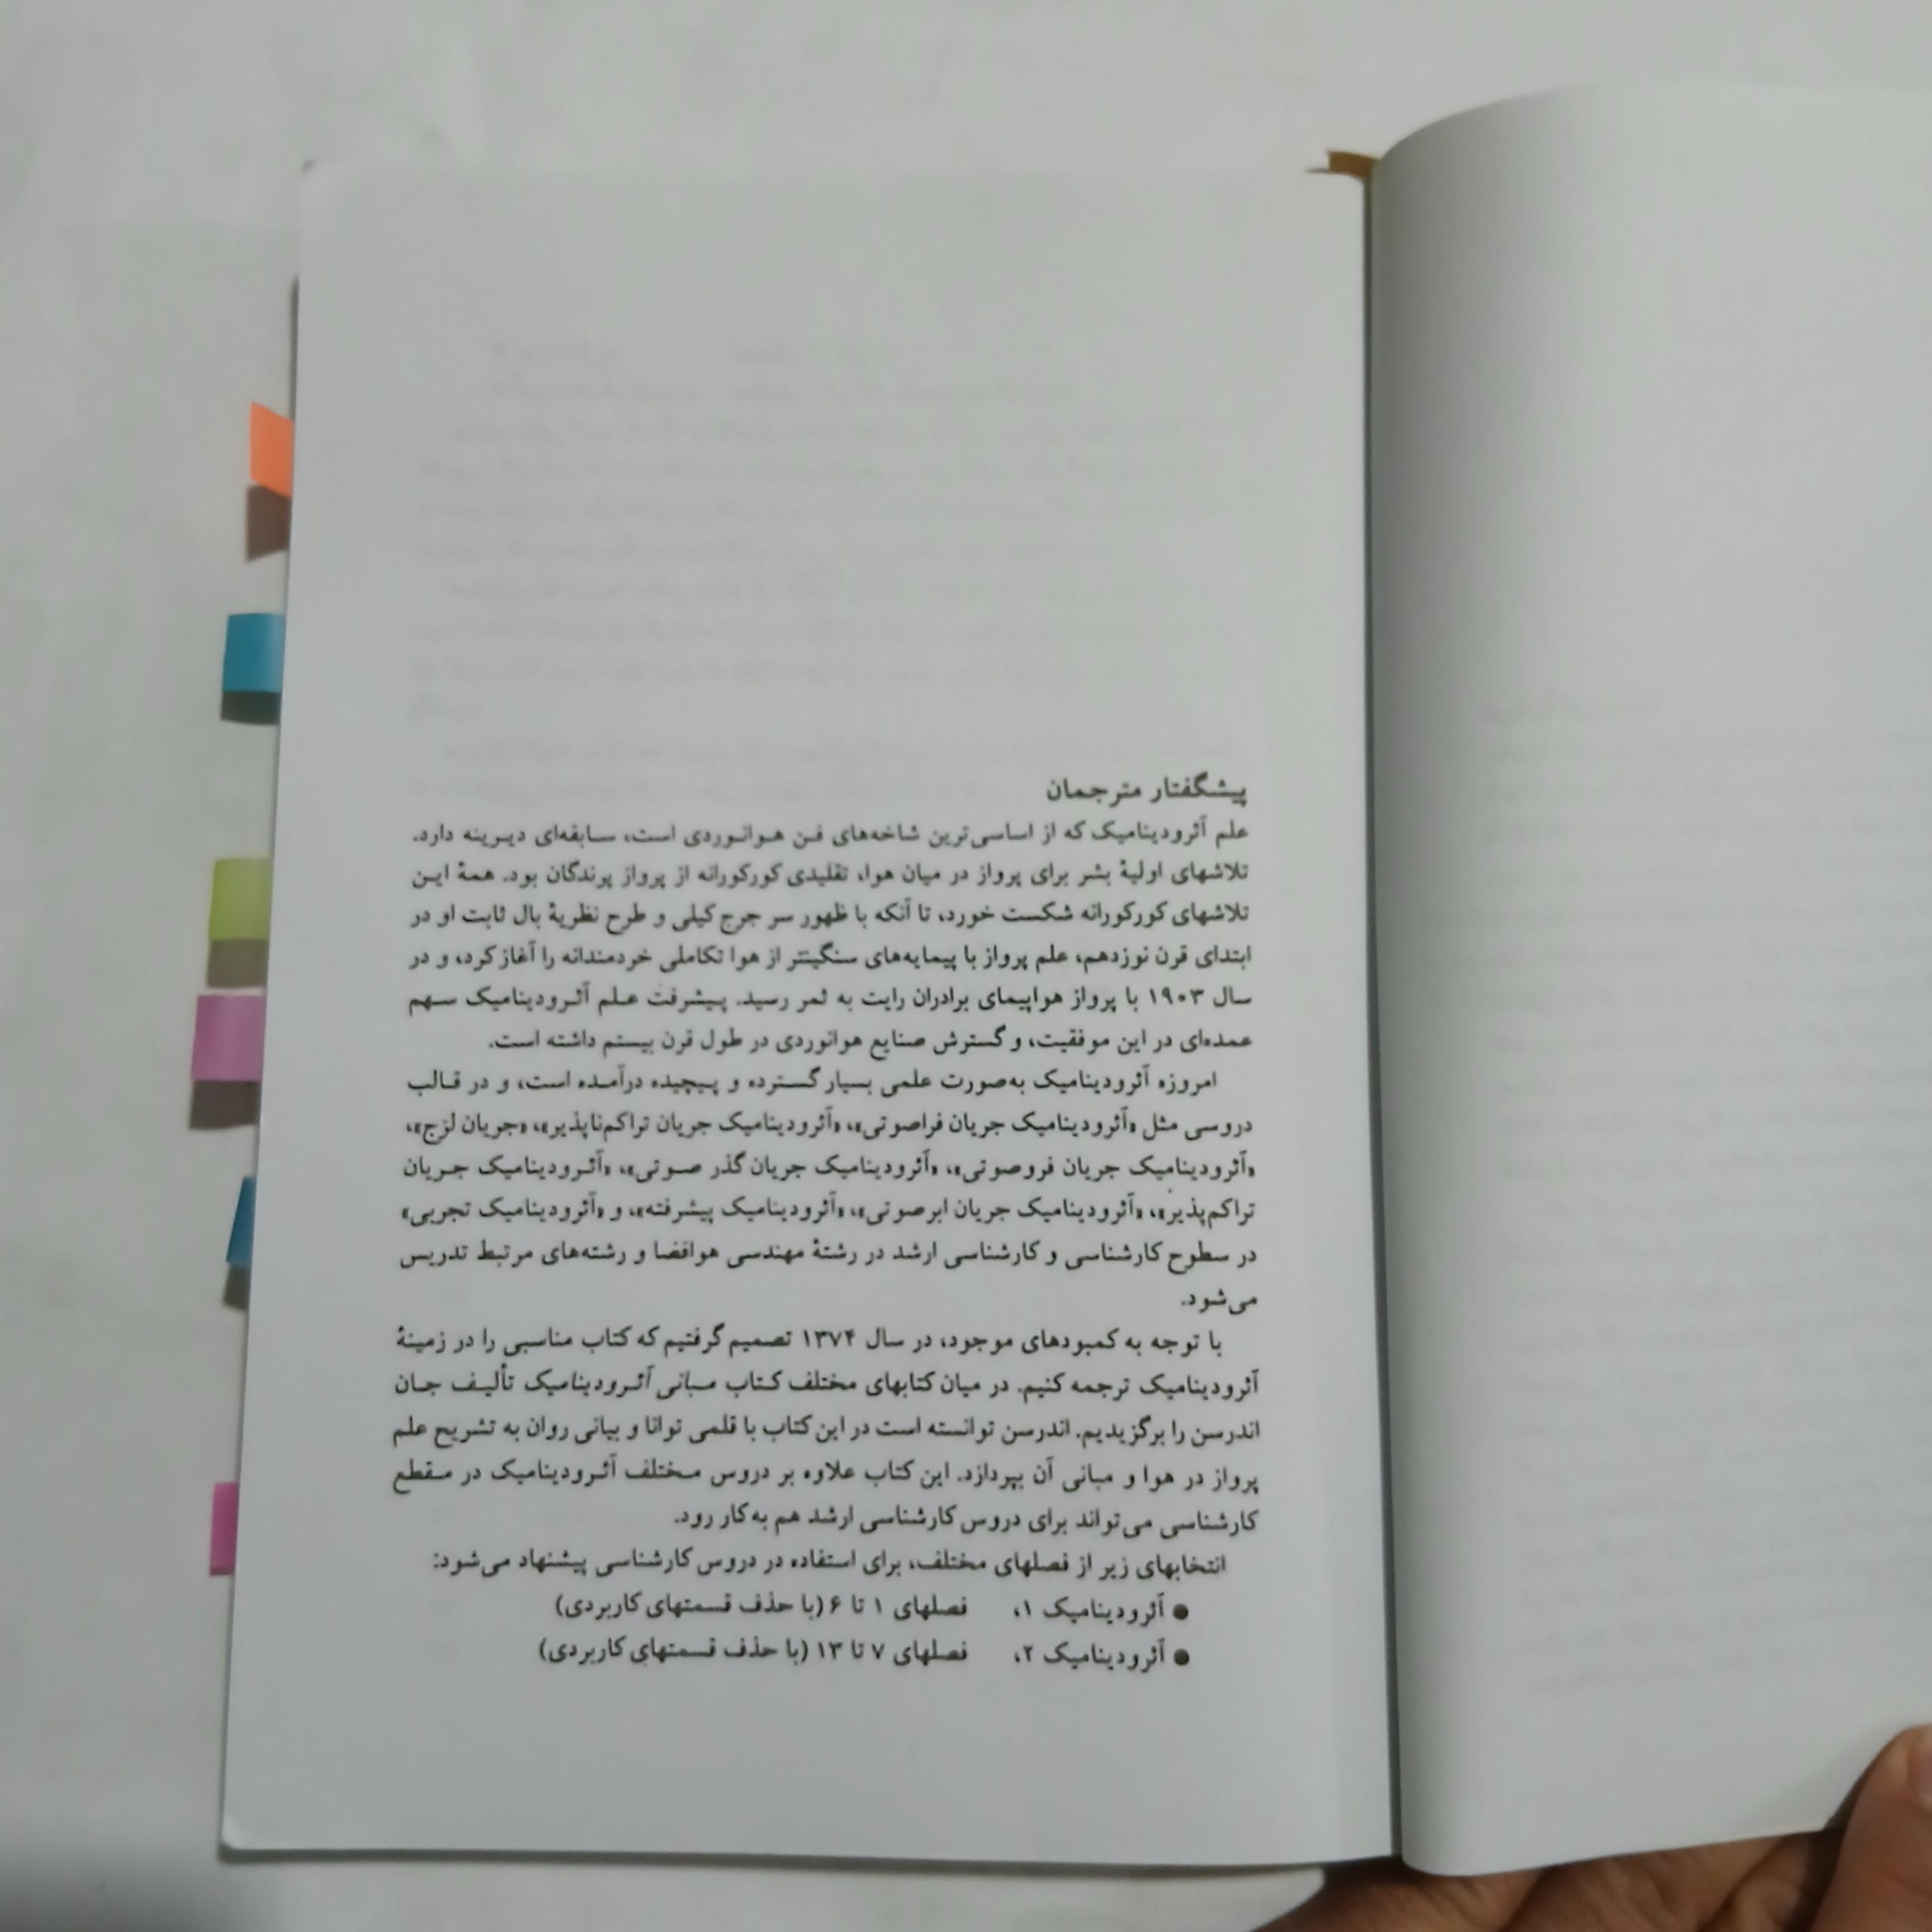 پیشگفتار مترجمان
علم آئرودینامیک که از اساسی‌ترین شاخه‌های فن هوانوردی است، سابقه‌ای دیرینه دارد.
تلاشهای اولیهٔ بشر برای پرواز در میان هوا، تقلیدی کورکورانه از پرواز پرندگان بود. همهٔ این
تلاشهای کورکورانه شکست خورد، تا آنکه با ظهور سر جرج کیلی و طرح نظریهٔ بال ثابت او در
ابتدای قرن نوزدهم، علم پرواز با پیمایه‌های سنگینتر از هوا تکاملی خردمندانه را آغاز کرد، و در
سال ۱۹۰۳ با پرواز هواپیمای برادران رایت به ثمر رسید. پیشرفت علم آئرودینامیک سهم
عمده‌ای در این موفقیت، و گسترش صنایع هوانوردی در طول قرن بیستم داشته است.
امروزه آئرودینامیک به‌صورت علمی بسیار گسترده و پیچیده درآمده است، و در قالب
دروسی مثل «آئرودینامیک جریان فراصوتی»، «آئرودینامیک جریان تراکم‌ناپذیر»، «جریان لزج»،
«آئرودینامیک جریان فروصوتی»، «آئرودینامیک جریان گذر صوتی»، «آئرودینامیک جریان
تراکم‌پذیر»، «آئرودینامیک جریان ابرصوتی»، «آئرودینامیک پیشرفته»، و «آئرودینامیک تجربی»
در سطوح کارشناسی و کارشناسی ارشد در رشتهٔ مهندسی هوافضا و رشته‌های مرتبط تدریس
می‌شود.
با توجه به کمبودهای موجود، در سال ۱۳۷۴ تصمیم گرفتیم که کتاب مناسبی را در زمینهٔ
آئرودینامیک ترجمه کنیم. در میان کتابهای مختلف کتاب مبانی آئرودینامیک تألیف جان
اندرسن را برگزیدیم. اندرسن توانسته است در این کتاب با قلمی توانا و بیانی روان به تشریح علم
پرواز در هوا و مبانی آن بپردازد. این کتاب علاوه بر دروس مختلف آئرودینامیک در مقطع
کارشناسی می‌تواند برای دروس کارشناسی ارشد هم به‌کار رود.
انتخابهای زیر از فصلهای مختلف، برای استفاده در دروس کارشناسی پیشنهاد می‌شود:
● آئرودینامیک ۱، فصلهای ۱ تا ۶ (با حذف قسمتهای کاربردی)
● آئرودینامیک ۲، فصلهای ۷ تا ۱۳ (با حذف قسمتهای کاربردی)